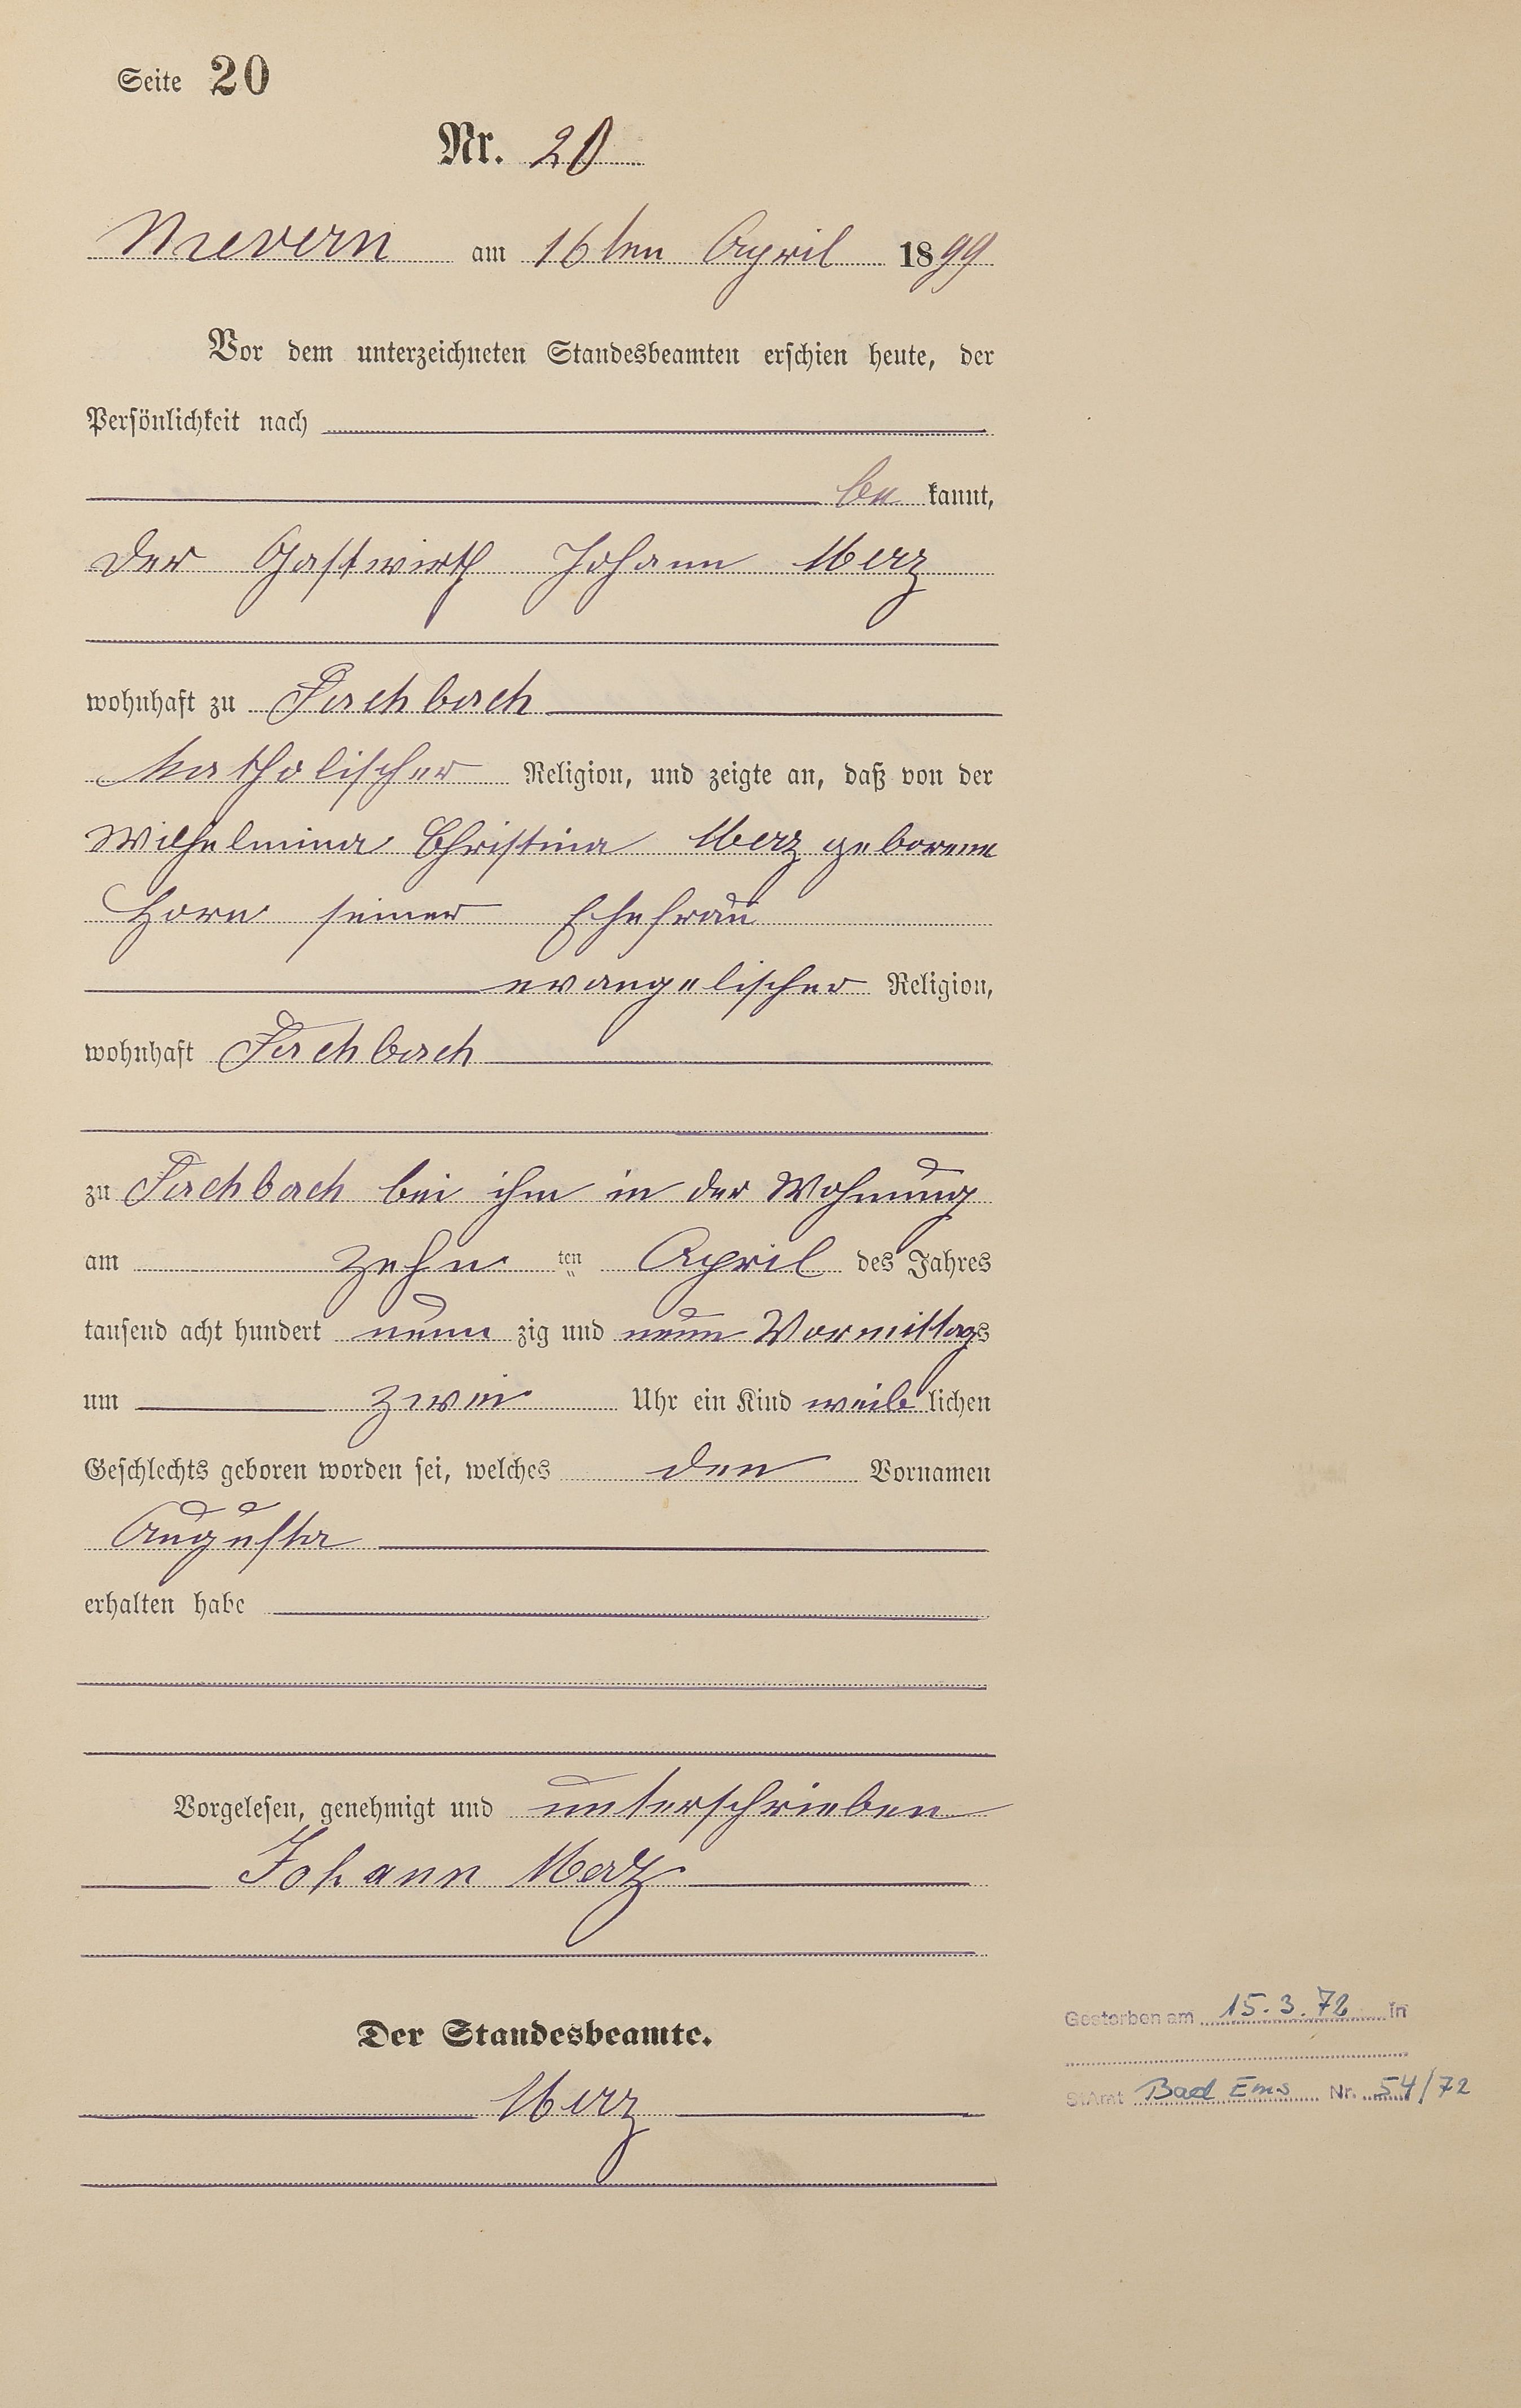 Seite 20
Nr. 20
Nievern am 16ten April 1899
Vor dem unterzeichneten Standesbeamten erschien heute, der
Persönlichkeit nach
be kannt,
der Gastwirth Johann Merz
wohnhaft zu Fachbach
katholischer Religion, und zeigte an, daß von der
Wilhelmina Christina Merz geborene
Horn seiner Ehefrau
evangelischer Religion,
wohnhaft Fachbach
zu Fachbach bei ihm in der Wohnung
am zehn ten April des Jahres
tausend acht hundert neun zig und neun Vormittags
um zwei Uhr ein Kind weib lichen
Geschlechts geboren worden sei, welches den Vornamen
Augusta
erhalten habe
Vorgelesen, genehmigt und unterschrieben
Johann Merz
Der Standesbeamte.
Merz
Gestorben am 15.3.72 in
StAmt Bad Ems Nr. 54/72